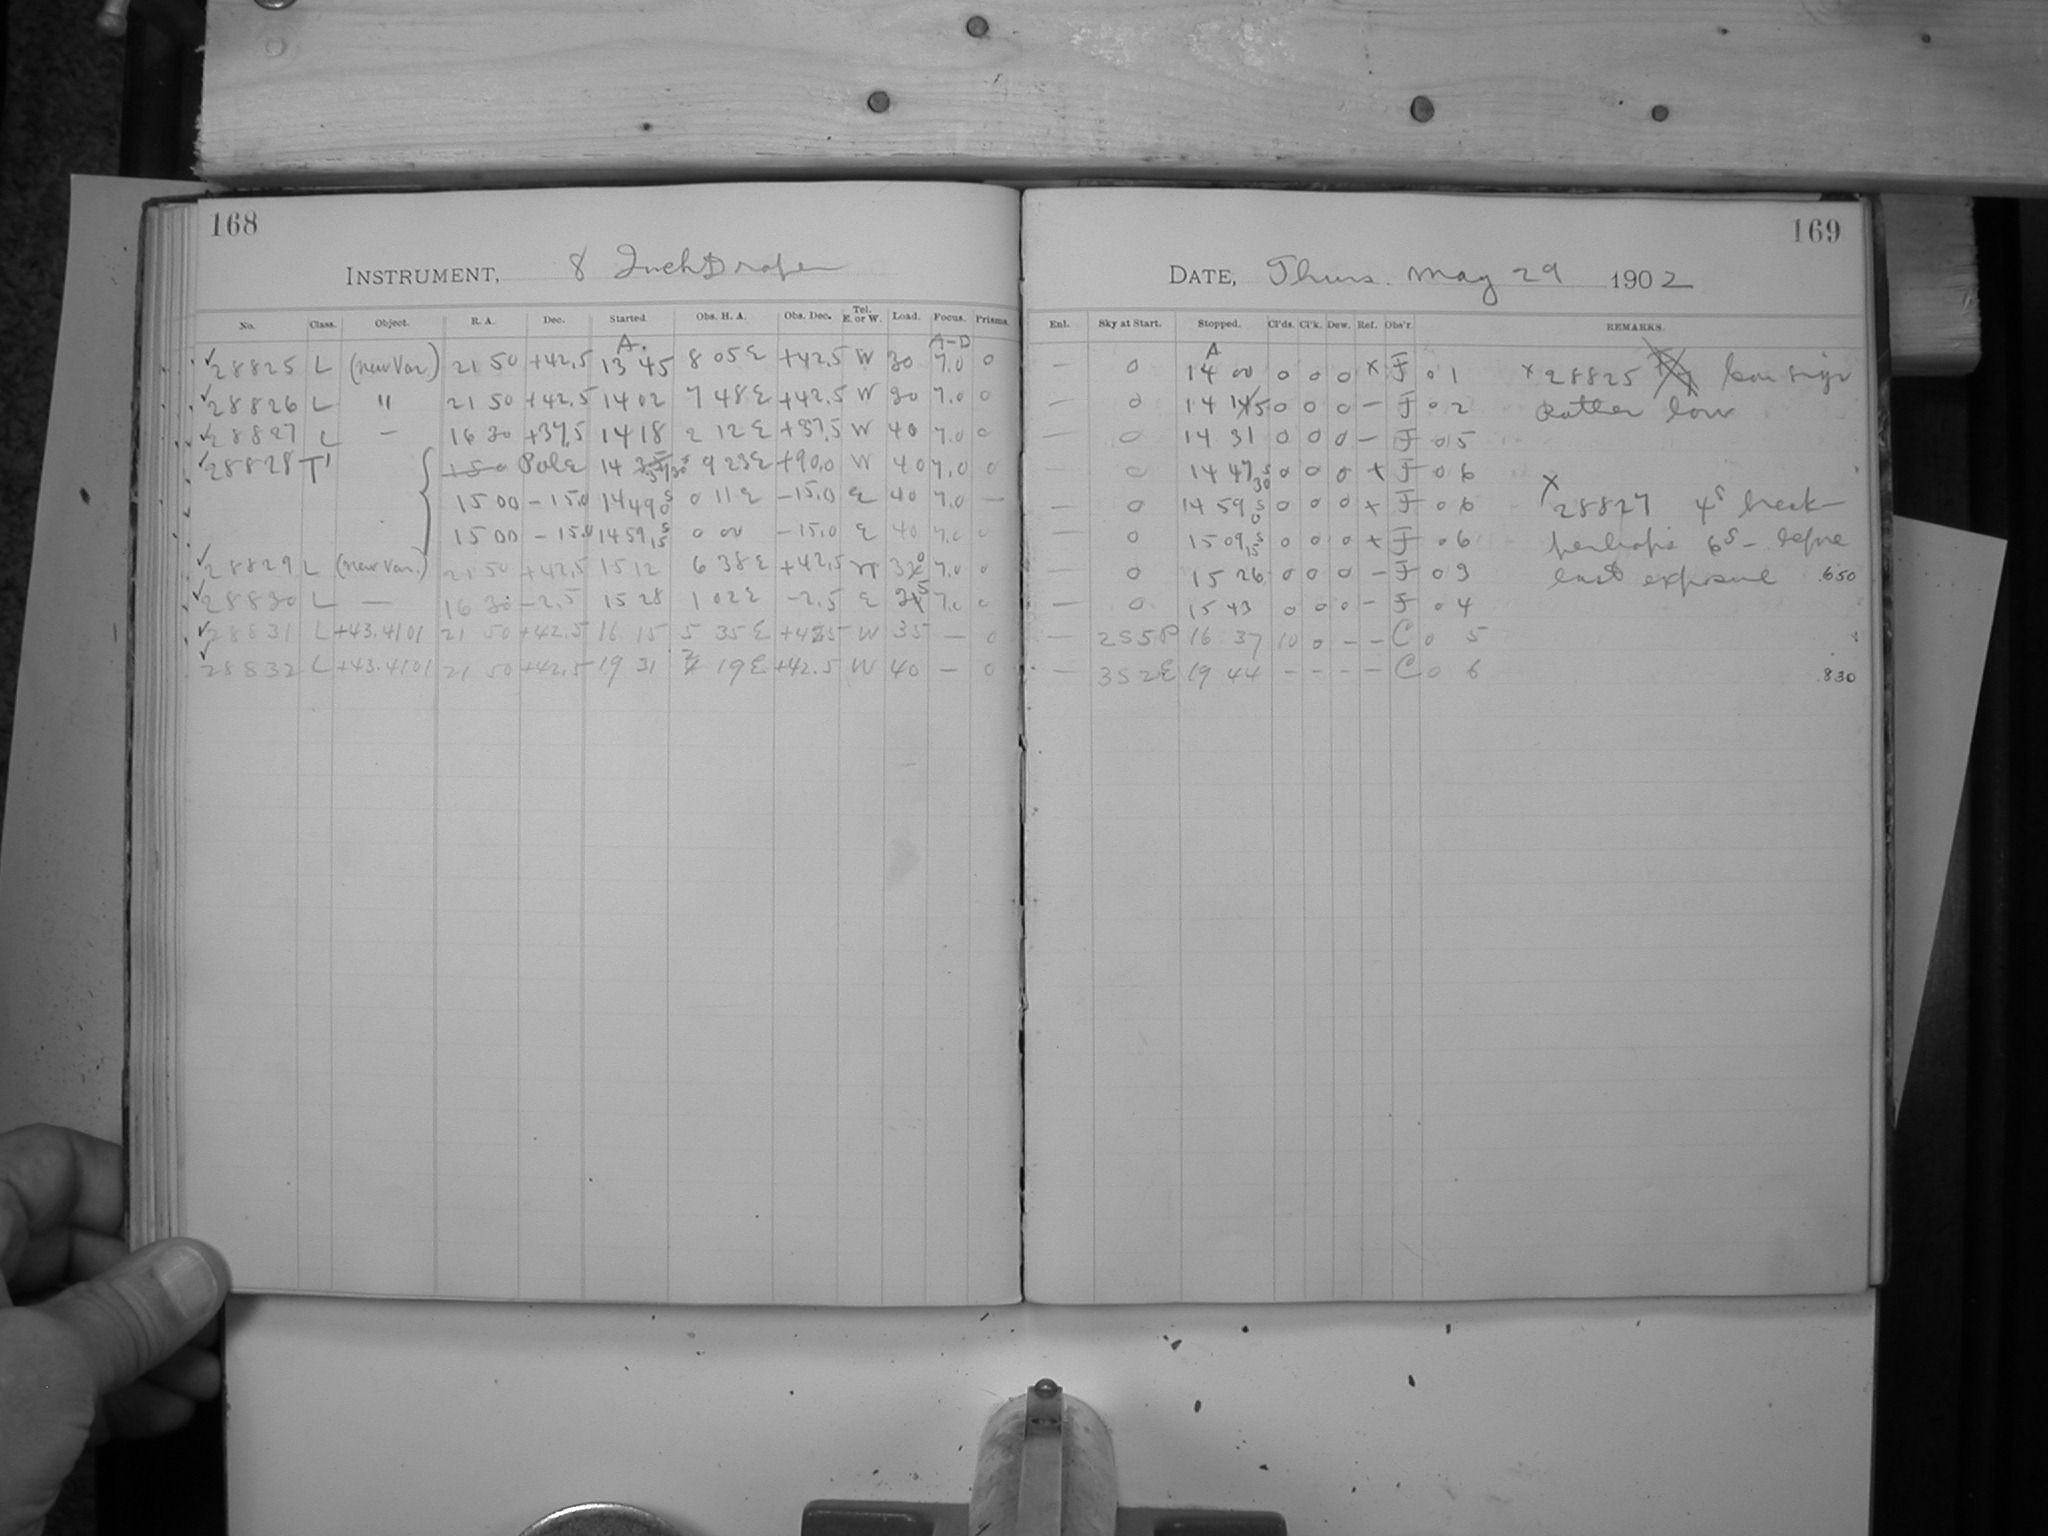 168
INSTRUMENT, 8 Inch Draper
No. Class. Object. R. A. Dec. Started. Obs. H. A. Obs. Dec. Tel. E. or W. Load. Focus. Prisms.
A. A-D
28825 L (new Var.) 21 50 +42.5 13 45 8 05 E +42.5 W 30 7.0 0
28826 L " 21 50 +42.5 14 02 7 48 E +42.5 W 30 7.0 0
28827 L — 16 30 +37.5 14 18 2 12 E +37.5 W 40 7.0 0
28828 T' Pole 14 9 23 E +90.0 W 40 7.0 0
15 00 -15.0 14 49 0s 0 11 E -15.0 E 40 7.0 —
15 00 -15.0 14 59 15s 0 00 -15.0 E 40 7.0 0
28829 L (new Var.) 21 50 +42.5 15 12 6 38 E +42.5 W 30 7.0 0
28830 L — 16 30 -2.5 15 28 1 02 E -2.5 E 35 7.0 0
28831 L +43.4101 21 50 +42.5 16 15 5 35 E +42.5 W 35 — 0
28832 L +43.4101 21 50 +42.5 19 31 2 19 E +42.5 W 40 — 0
169
DATE, Thurs. May 29 1902
Enl. Sky at Start. Stopped. Cl'ds. Cl'k. Dew. Ref. Obs'r. REMARKS.
A
— 0 14 00 0 0 0 x F 0 1 x 28825
— 0 14 15 0 0 0 — F 0 2 Rather low
— 0 14 31 0 0 0 — F 0 5
0 14 47 30s 0 0 0 x F 0 6
— 0 14 59 0s 0 0 0 x F 0 6 x 28827 4s break
0 15 09 15s 0 0 0 x F 0 6 perhaps 6s — before
— 0 15 26 0 0 0 — F 0 3 last exposure .650
— 0 15 43 0 0 0 — F 0 4
— 2S5P 16 37 10 0 — — C 0 5
— 3S2E 19 44 — — — — C 0 6 830